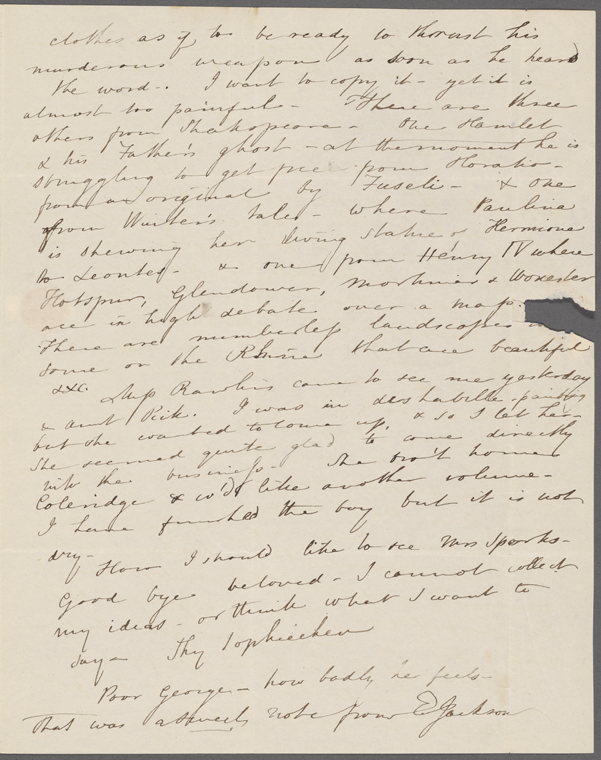 clothes as if to be ready to thrust his
murderous weapon as soon as he heard
the word -. I want to copy it - yet it is
almost too painful - There are three
others from Shakspeare - One Hamlet
& his Father's ghost - at the moment he is
struggling to get free from Horatio -
from an original by Fuseli - & one
from Winter's tale - where Paulina
is shewing her living statue of Hermione
to Leontes - & one from Henry IV where
Hotspur, Glendower, Mortimer & Worcester
are in high debate over a map.
There are numberless landscapes
some on the Rhine that are beautiful
&&c. Miss Rawlins came to see me yesterday
& aunt Pick. I was in deshabille - painting
but she wanted to come up, & so I let her -
She seemed quite glad to come directly
into the business - She bro't home
Coleridge & w'd like another volume -
I have finished the boy but it is not
dry -
How I should like to see Mrs Sparks -
Good bye beloved - I cannot collect
my ideas - or think what I want to
say - Thy Sophiechen
Poor George - how badly he feels -
That was a sweet note from E Jackson